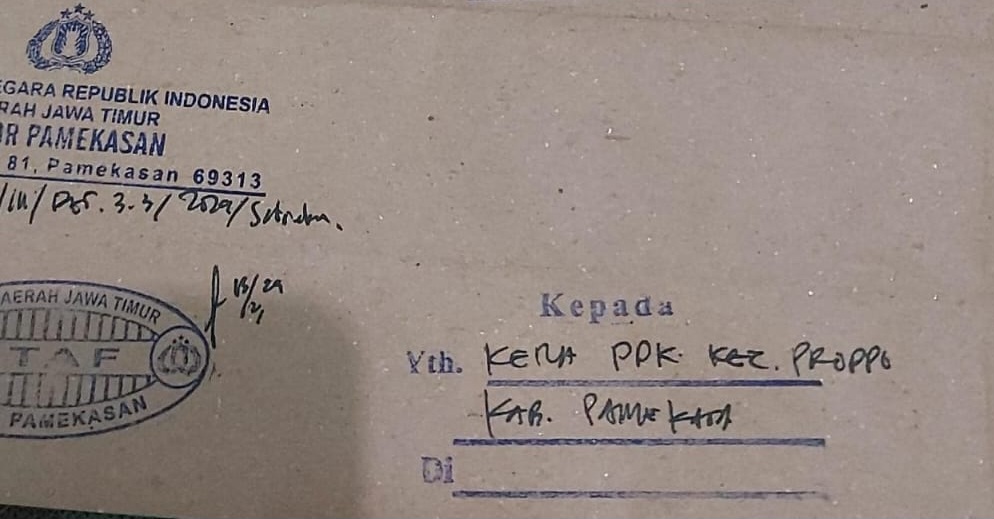 EGARA REPUBLIK INDONESIA
RAH JAWA TIMUR
OR PAMEKASAN
81, Pamekasan 69313
/III/ RES. 3.3/ 2024/
AERAH JAWA TIMUR
TAF
PAMEKASAN
Kepada
Yth. KETUA PPK KEC. PROPPO
KAB. PAMEKASAN
Di